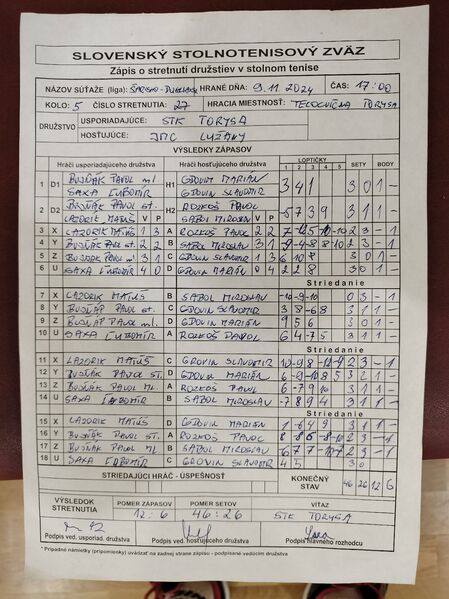 SLOVENSKÝ STOLNOTENISOVÝ ZVÄZ
Zápis o stretnutí družstiev v stolnom tenise
NÁZOV SÚŤAŽE (liga): HRANÉ DŇA: 9.11.2024 ČAS: 17:00
KOLO: 5 ČÍSLO STRETNUTIA: 27 HRACIA MIESTNOSŤ: TELOCVIČŇA TORYSA
DRUŽSTVO USPORIADAJÚCE: STK TORYSA
HOSŤUJÚCE: JMC LUŽANY
VÝSLEDKY ZÁPASOV
Hráči usporiadajúceho družstva Hráči hosťujúceho družstva LOPTIČKY 1 2 3 4 5 SETY BODY
1 D1 BUJŇÁK PAVOL ml. H1 GDOVIN MARIÁN 3 4 1 3 0 1 -
SAXA ĽUBOMÍR GDOVIN SLAVOMÍR
2 D2 BUJŇÁK PAVOL st. H2 ROZKOŠ PAVOL -5 7 3 9 3 1 1 -
LAZORIK MATÚŠ V P SABOL MIROSLAV V P
3 X LAZORIK MATÚŠ 1 3 A ROZKOŠ PAVOL 2 2 2 3 - 1
4 Y BUJŇÁK PAVOL st. 2 2 B SABOL MIROSLAV 3 1 2 3 - 1
5 Z BUJŇÁK PAVOL ml. 3 1 C GDOVIN SLAVOMÍR 1 3 6 10 8 3 0 1 -
6 U SAXA ĽUBOMÍR 4 0 D GDOVIN MARIÁN 0 4 2 2 8 3 0 1 -
Striedanie
7 X LAZORIK MATÚŠ B SABOL MIROSLAV -10 -9 -10 0 3 - 1
8 Y BUJŇÁK PAVOL st. C GDOVIN SLAVOMÍR 3 8 -6 8 3 1 1 -
9 Z BUJŇÁK PAVOL ml. D GDOVIN MARIÁN 9 5 6 3 0 1 -
10 U SAXA ĽUBOMÍR A ROZKOŠ PAVOL 6 4 -7 5 3 1 1 -
Striedanie
11 X LAZORIK MATÚŠ C GDOVIN SLAVOMÍR 2 3 - 1
12 Y BUJŇÁK PAVOL ST. D GDOVIN MARIÁN 6 -9 -10 8 5 3 2 1 -
13 Z BUJŇÁK PAVOL ML. A ROZKOŠ PAVOL 6 -7 9 10 3 1 1 -
14 U SAXA ĽUBOMÍR B SABOL MIROSLAV -7 8 9 4 3 1 1 -
Striedanie
15 X LAZORIK MATÚŠ D GDOVIN MARIÁN 1 -6 4 9 3 1 1 -
16 Y BUJŇÁK PAVOL ST. A ROZKOŠ PAVOL 2 3 - 1
17 Z BUJŇÁK PAVOL ML. B SABOL MIROSLAV 2 3 - 1
18 U SAXA ĽUBOMÍR C GDOVIN SLAVOMÍR 4 5 3 0
STRIEDAJÚCI HRÁČ - ÚSPEŠNOSŤ KONEČNÝ STAV 46 26 12 6
VÝSLEDOK STRETNUTIA POMER ZÁPASOV POMER SETOV VÍŤAZ
12:6 46:26 STK TORYSA
Podpis ved. usporiad. družstva Podpis ved. hosťujúceho družstva Podpis hlavného rozhodcu
* Prípadné námietky (pripomienky) uvádzať na zadnej strane zápisu - podpísané vedúcim družstva